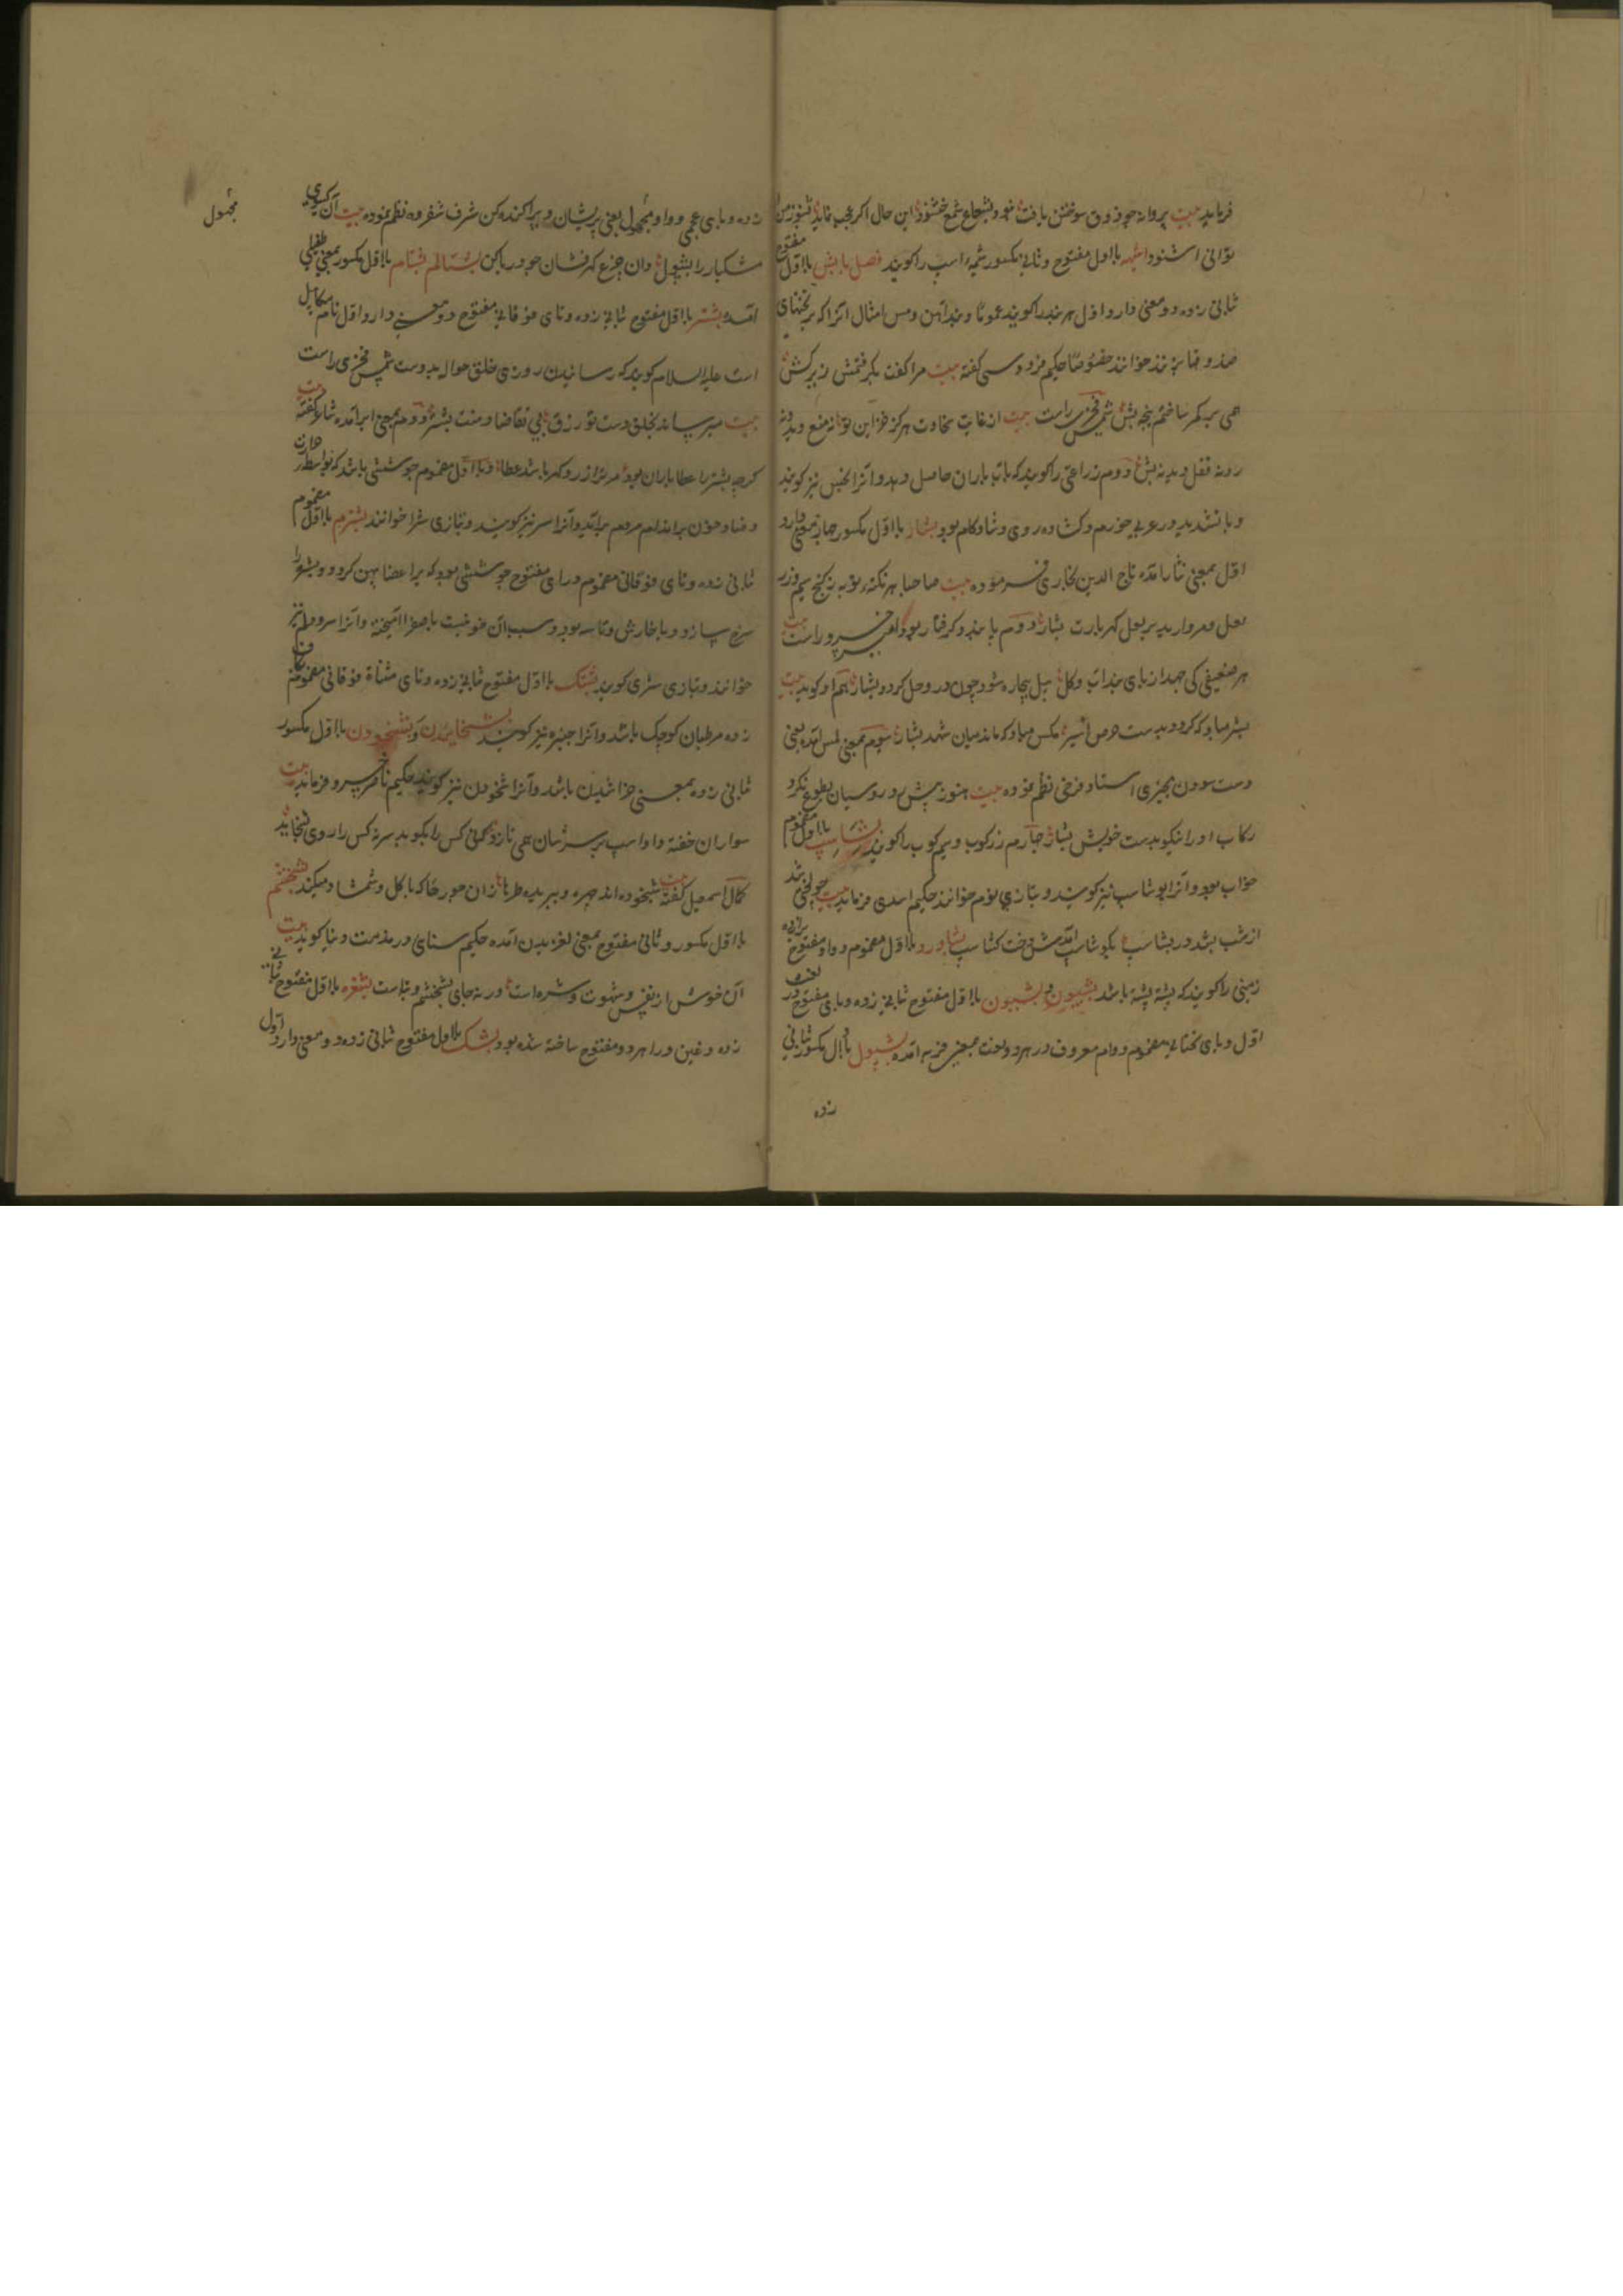 فرماید بیت پروانه چو ذوق سوختن یافت نبود بشعاع شمع خشنود این حال اگر عجب نماید بشنوز من
توانی اشنود اشیهه بااول مفتوح و ثانی مکسور شیهه اسب را کویند فصل با شین بااول مفتوح
ثانی زده دو معنی دارد اول هر بند را کویند عموما و بند آهن و مس امثال آنرا که بر تختهای
صندوقها بزنند خوانند خصوصا حکیم فردوسی کفته بیت مرا کفت بکرفتمش زیر کش
همی بر کمر ساختم پنجه بش شمس فخری راست بیت از غایت سخاوت هرکز خزاین تو نه منع دیده نه
رونه قفل دیده نه بش دوم زراعتی را کویند که بآب باران حاصل دهد و آنرا بخس نیز کویند
و با تشدید در عربی خورم و کشاده روی و شادکام بود بشار بااول مکسور چهار معنی دارد
اول بمعنی نثار آمده تاج الدین بخاری فرموده بیت صاحبا بهر نکته تو به ز کنج سیم و زر
لعل و مروارید بر لعل کهربارت بشار دوم پابند و کرفتار بود امیر خسرو راست بیت
هر ضعیفی کی جهد از پای بنداب و کل پیل بیچاره شود چون در وحل کردد بشار هم او کوید بیت
بشر مباد که کردد بدست حرص اسیر مکس مباد که ماند میان شهد بشار سوم بمعنی لمس آمده یعنی
دست سودن بچیزی استاد فرخی نظم نموده بیت هنوز پیش رو روسیان بطوع نکرد
رکاب او را نیکو بدست خویش بشار چهارم زرکوب و سیم کوب را کویند بشاسپ بااول مضموم
خواب بود و آنرا بوشاسپ نیز کویند و بتازی نوم خوانند حکیم اسدی فرماید بیت چو لختی شد
از شب بشد در بشاسپ بکوشاسپ آمدش دخت کشاسپ بشاورد بااول مضموم و واو مفتوح براء زده
زمینی را کویند که پشته پشته باشد بشبیون و بشبون بااول مفتوح ثانی زده و بای مفتوح در لغت
اول و بای تحتانی مضموم و واو معروف در هر دو لغت بمعنی فربه آمده بشپول بااول مکسور ثانی
زده
زده و بای عجمی و واو مجهول یعنی پریشان و پراکنده کن شرف شفروه نظم نموده بیت آن کیسوی
مجهول
مشکبار را بشپول وان جزع کهرفشان چو دریا کن بشتالم بشتام بااول مکسور بمعنی طفیلی
آمده بشتر بااول مفتوح ثانی زده و تای فوقانی مفتوح دو معنی دارد اول نام میکاییل
است علیه السلام کویند که رسانیدن روزی خلق حواله بدوست شمس فخری راست
بیت میرساند بخلق دست تو رزق بی تقاضا و منت بشتر دوم بمعنی ابر آمده شاعر کفته بیت
کرچه بشتر را عطا باران بود مر ترا زر و کهر باشد عطا و بااول مضموم جوششی باشد که بواسطه حرارت
و فساد خون بر اندام مردم برآید و آنرا سر نیز کویند و بتازی شرا خوانند بشترم بااول مضموم
ثانی زده و تای فوقانی مضموم و رای مفتوح جوششی بود که بر اعضا پهن کردد و بشره را
سرخ سازد و با خارش و تاسه بود و سبب آن خونیست با صفرا آمیخته و آنرا سروم نیز
خوانند و بتازی شری کویند بشتک بااول مفتوح ثانی زده و تای مثناة فوقانی مضموم
زده مرطبان کوچک باشد و آنرا جنیره نیز کویند بشخاییدن و بشخودن بااول مکسور
ثانی زده بمعنی خراشیدن باشد و آنرا شخودن نیز کویند حکیم ناصر خسرو فرماید بیت
سواران خفته و او اسپ بر سرشان همی تازد که نی کس را بکوبد سر نه کس را روی بشخاید
کمال اسمعیل کفته بیت شخوده اند چهره و ببریده طره‌ها زان جور خا که با کل و شمشاد میکند بشخشم
بااول مکسور و ثانی مفتوح بمعنی لغزیدن آمده حکیم سنای در مذمت دنیا کوید بیت
آن خوش از نفس و شهوت و شره است ورنه جای بشخشم و تباست بشغره بااول مفتوح ثانی
زده و غین و را هر دو مفتوح ساخته شده بود بشک بااول مفتوح ثانی زده دو معنی دارد اول